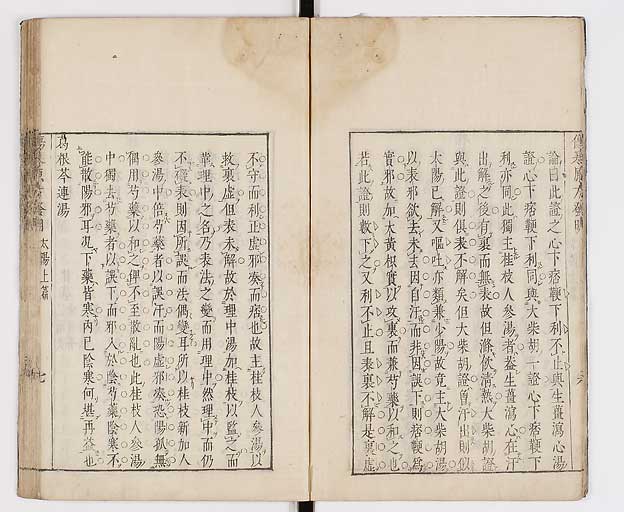 論曰此證之心下痞鞕下利不止與生薑瀉心湯
證心下痞鞕下利同與大柴胡一證心下痞鞕下
利亦同此獨主桂枝人參湯者蓋生薑瀉心在汗
出解之後有裏而無表故但滌飲清熱大柴胡證
與此證則俱表不解矣但大柴胡證曾汗出則似
太陽已解又嘔吐亦類兼少陽故竟主大柴胡湯
以表邪欲去未去因自汗而非因誤下則痞鞕為
實邪故加大黃枳實以攻裏而兼芍藥以和之也
若此證則數下之又利不止且表裏不解是裏虛
六
不守而利止虛邪湊而痞也故主桂枝人參湯以
救裏虛但表未解故於理中湯加桂枝以監之而
單理中之名乃表法之變而用理中然理中而仍
不礙表則因所誤而法偶變耳所以桂枝新加人
參湯中倍芍藥者以誤汗而陽虛邪湊恐陽孤無
偶用芍藥以和之俾不至散亂也此桂枝人參湯
中獨去芍藥者以誤下而邪入於陰芍藥陰寒不
能散陽邪耳况下藥皆寒內已陰寒何堪再益也
葛根芩連湯
太陽上篇
七